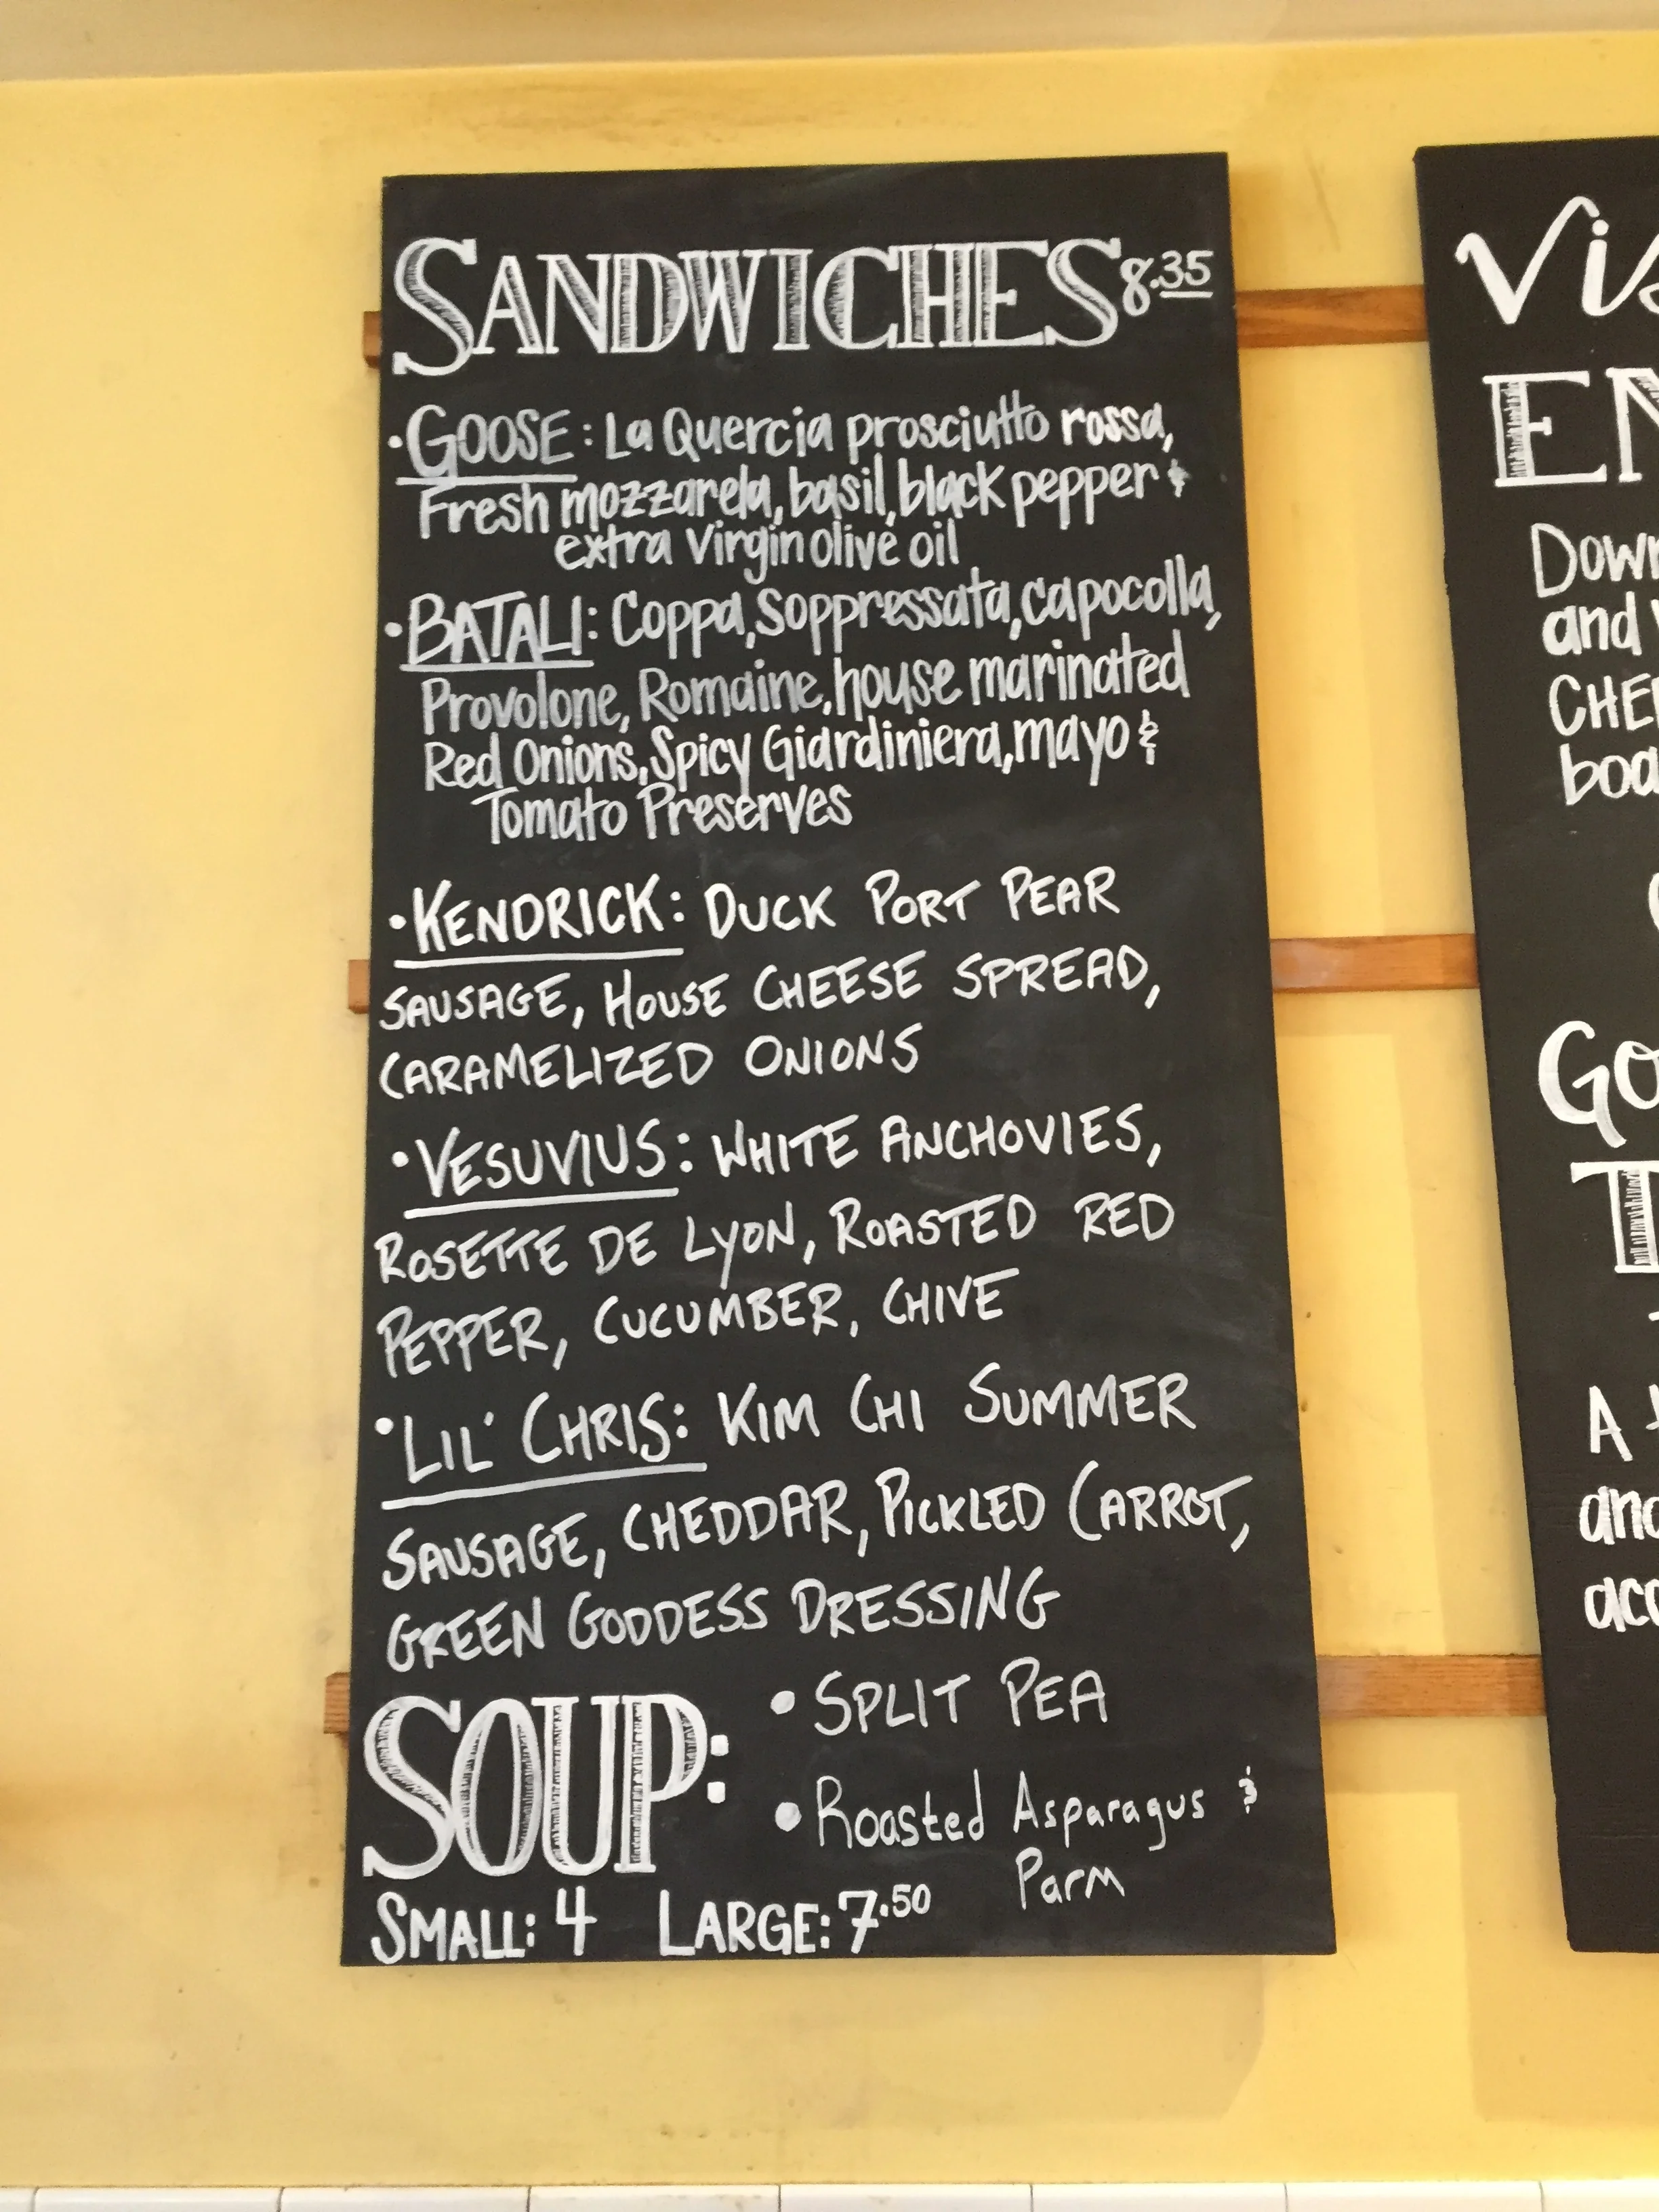 SANDWICHES 8.35
• GOOSE: La Quercia prosciutto rossa,
Fresh mozzarela, basil, black pepper &
extra Virgin olive oil
• BATALI: Coppa, Soppressata, capocolla,
Provolone, Romaine, house marinated
Red Onions, Spicy Giardiniera, mayo &
Tomato Preserves
• KENDRICK: DUCK PORT PEAR
SAUSAGE, HOUSE CHEESE SPREAD,
CARAMELIZED ONIONS
• VESUVIUS: WHITE ANCHOVIES,
ROSETTE DE LYON, ROASTED RED
PEPPER, CUCUMBER, CHIVE
• LIL' CHRIS: KIM CHI SUMMER
SAUSAGE, CHEDDAR, PICKLED CARROT,
GREEN GODDESS DRESSING
SOUP:
• SPLIT PEA
• Roasted Asparagus &
Parm
SMALL: 4 LARGE: 7.50
and
A